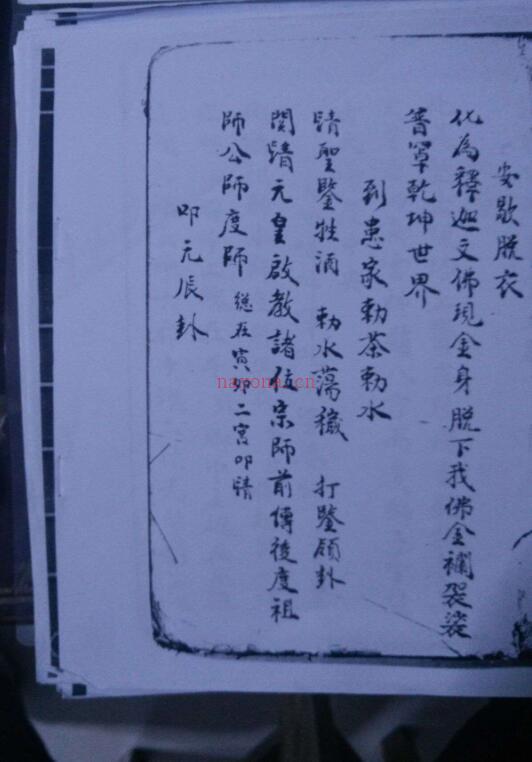 安歇脱衣
化為釋迦文佛現金身脱下我佛金襴袈裟
普罩乾坤世界
到患家勅茶勅水
請聖鑒牲酒 勅水蕩穢 打鑒領卦
閞請元皇啟教諸位宗師前傳後度祖
師公師度師 總在寅卯二宮叩請
叩元辰卦
nayona.cn